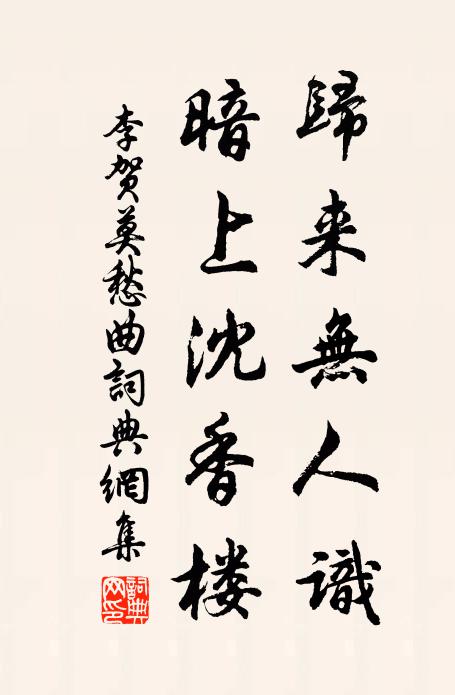 歸来無人識
暗上沈香楼
李賀莫愁曲詞典網集
詞典網印